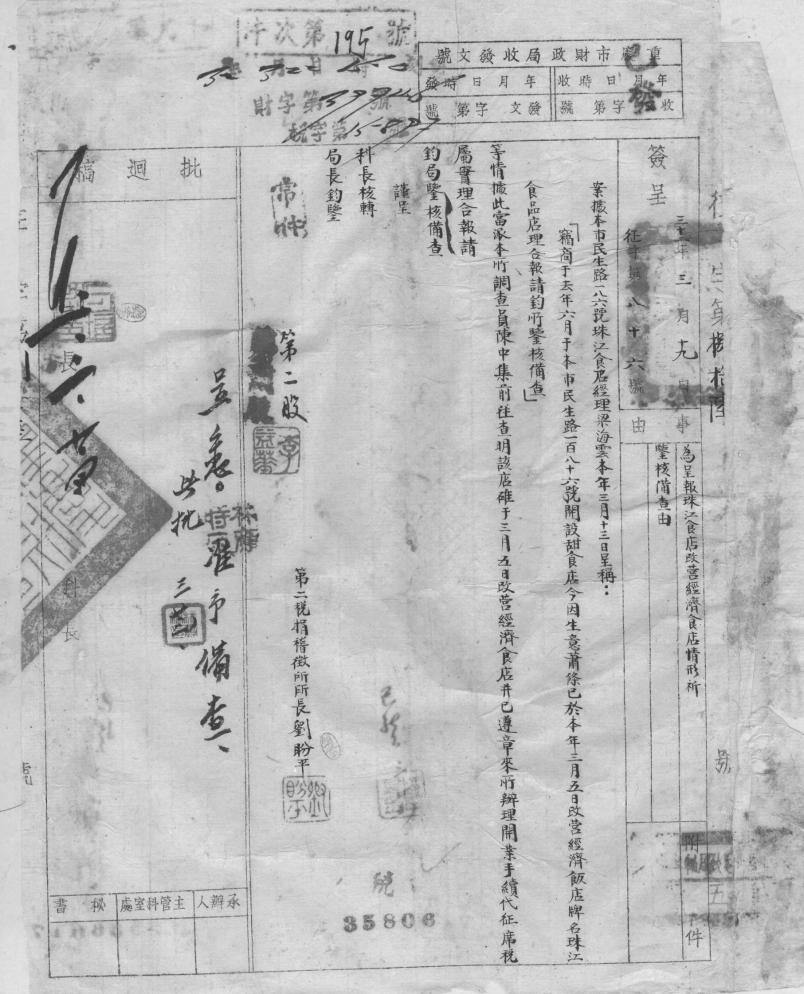 號次第195件
重慶市財政局收發文號
年月日時收
年月日時發
收字第號
發文字第號
財字第號
已發
簽呈
三十三年三月十九日
征字第八十六號
事由
為呈報珠江食店改營經濟食店情形祈
鑒核備查由
附件
案據本市民生路一八六號珠江食店經理梁海雲本年三月十三日呈稱：
「竊商于去年六月于本市民生路一百八十六號開設甜食店今因生意蕭條已於本年三月五日改營經濟飯店牌名珠江
食品店理合報請鈞所鑒核備查」
等情據此當派本所調查員陳中集前往查明該店確于三月五日改營經濟食店并已遵章來所辦理開業手續代征席稅
屬實理合報請
鈞局鑒核備查
謹呈
科長核轉
局長鈞鑒
第二股
第二稅捐稽徵所所長劉盼平
35806
批迴稿
呈悉。
准予備查、
此批
科長
承辦人
主管科室處
秘書